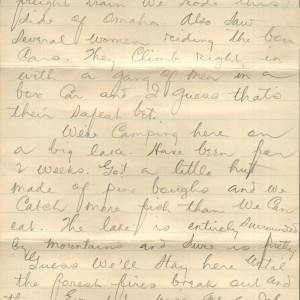 freight train we rode this
side of Omaha. Also saw
several women riding the box
cars. They climb right in
with a gang of men in a
box car and I guess that's
their safest bet.
Were camping here on
a big lake. Have been for
2 weeks. Got a little hut
made of pine boughs and we
catch more fish than we can
eat. The lake is entirely surrounded
by mountains and sure is pretty.
Guess We'll stay here until
the forest fires break out and